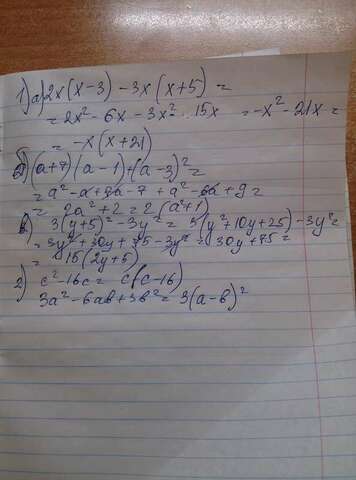 1) а) 2x(x-3) - 3x(x+5) =
= 2x² - 6x - 3x² - 15x = -x² - 21x =
= -x(x+21)
б) (a+7)(a-1)+(a-3)² =
= a² - a + 7a - 7 + a² - 6a + 9 =
= 2a² + 2 = 2(a²+1)
в) 3(y+5)² - 3y² = 3(y²+10y+25) - 3y² =
= 3y² + 30y + 75 - 3y² = 30y + 75 =
= 15(2y+5)
2) c² - 16c = c(c-16)
3a² - 6ab + 3b² = 3(a-b)²